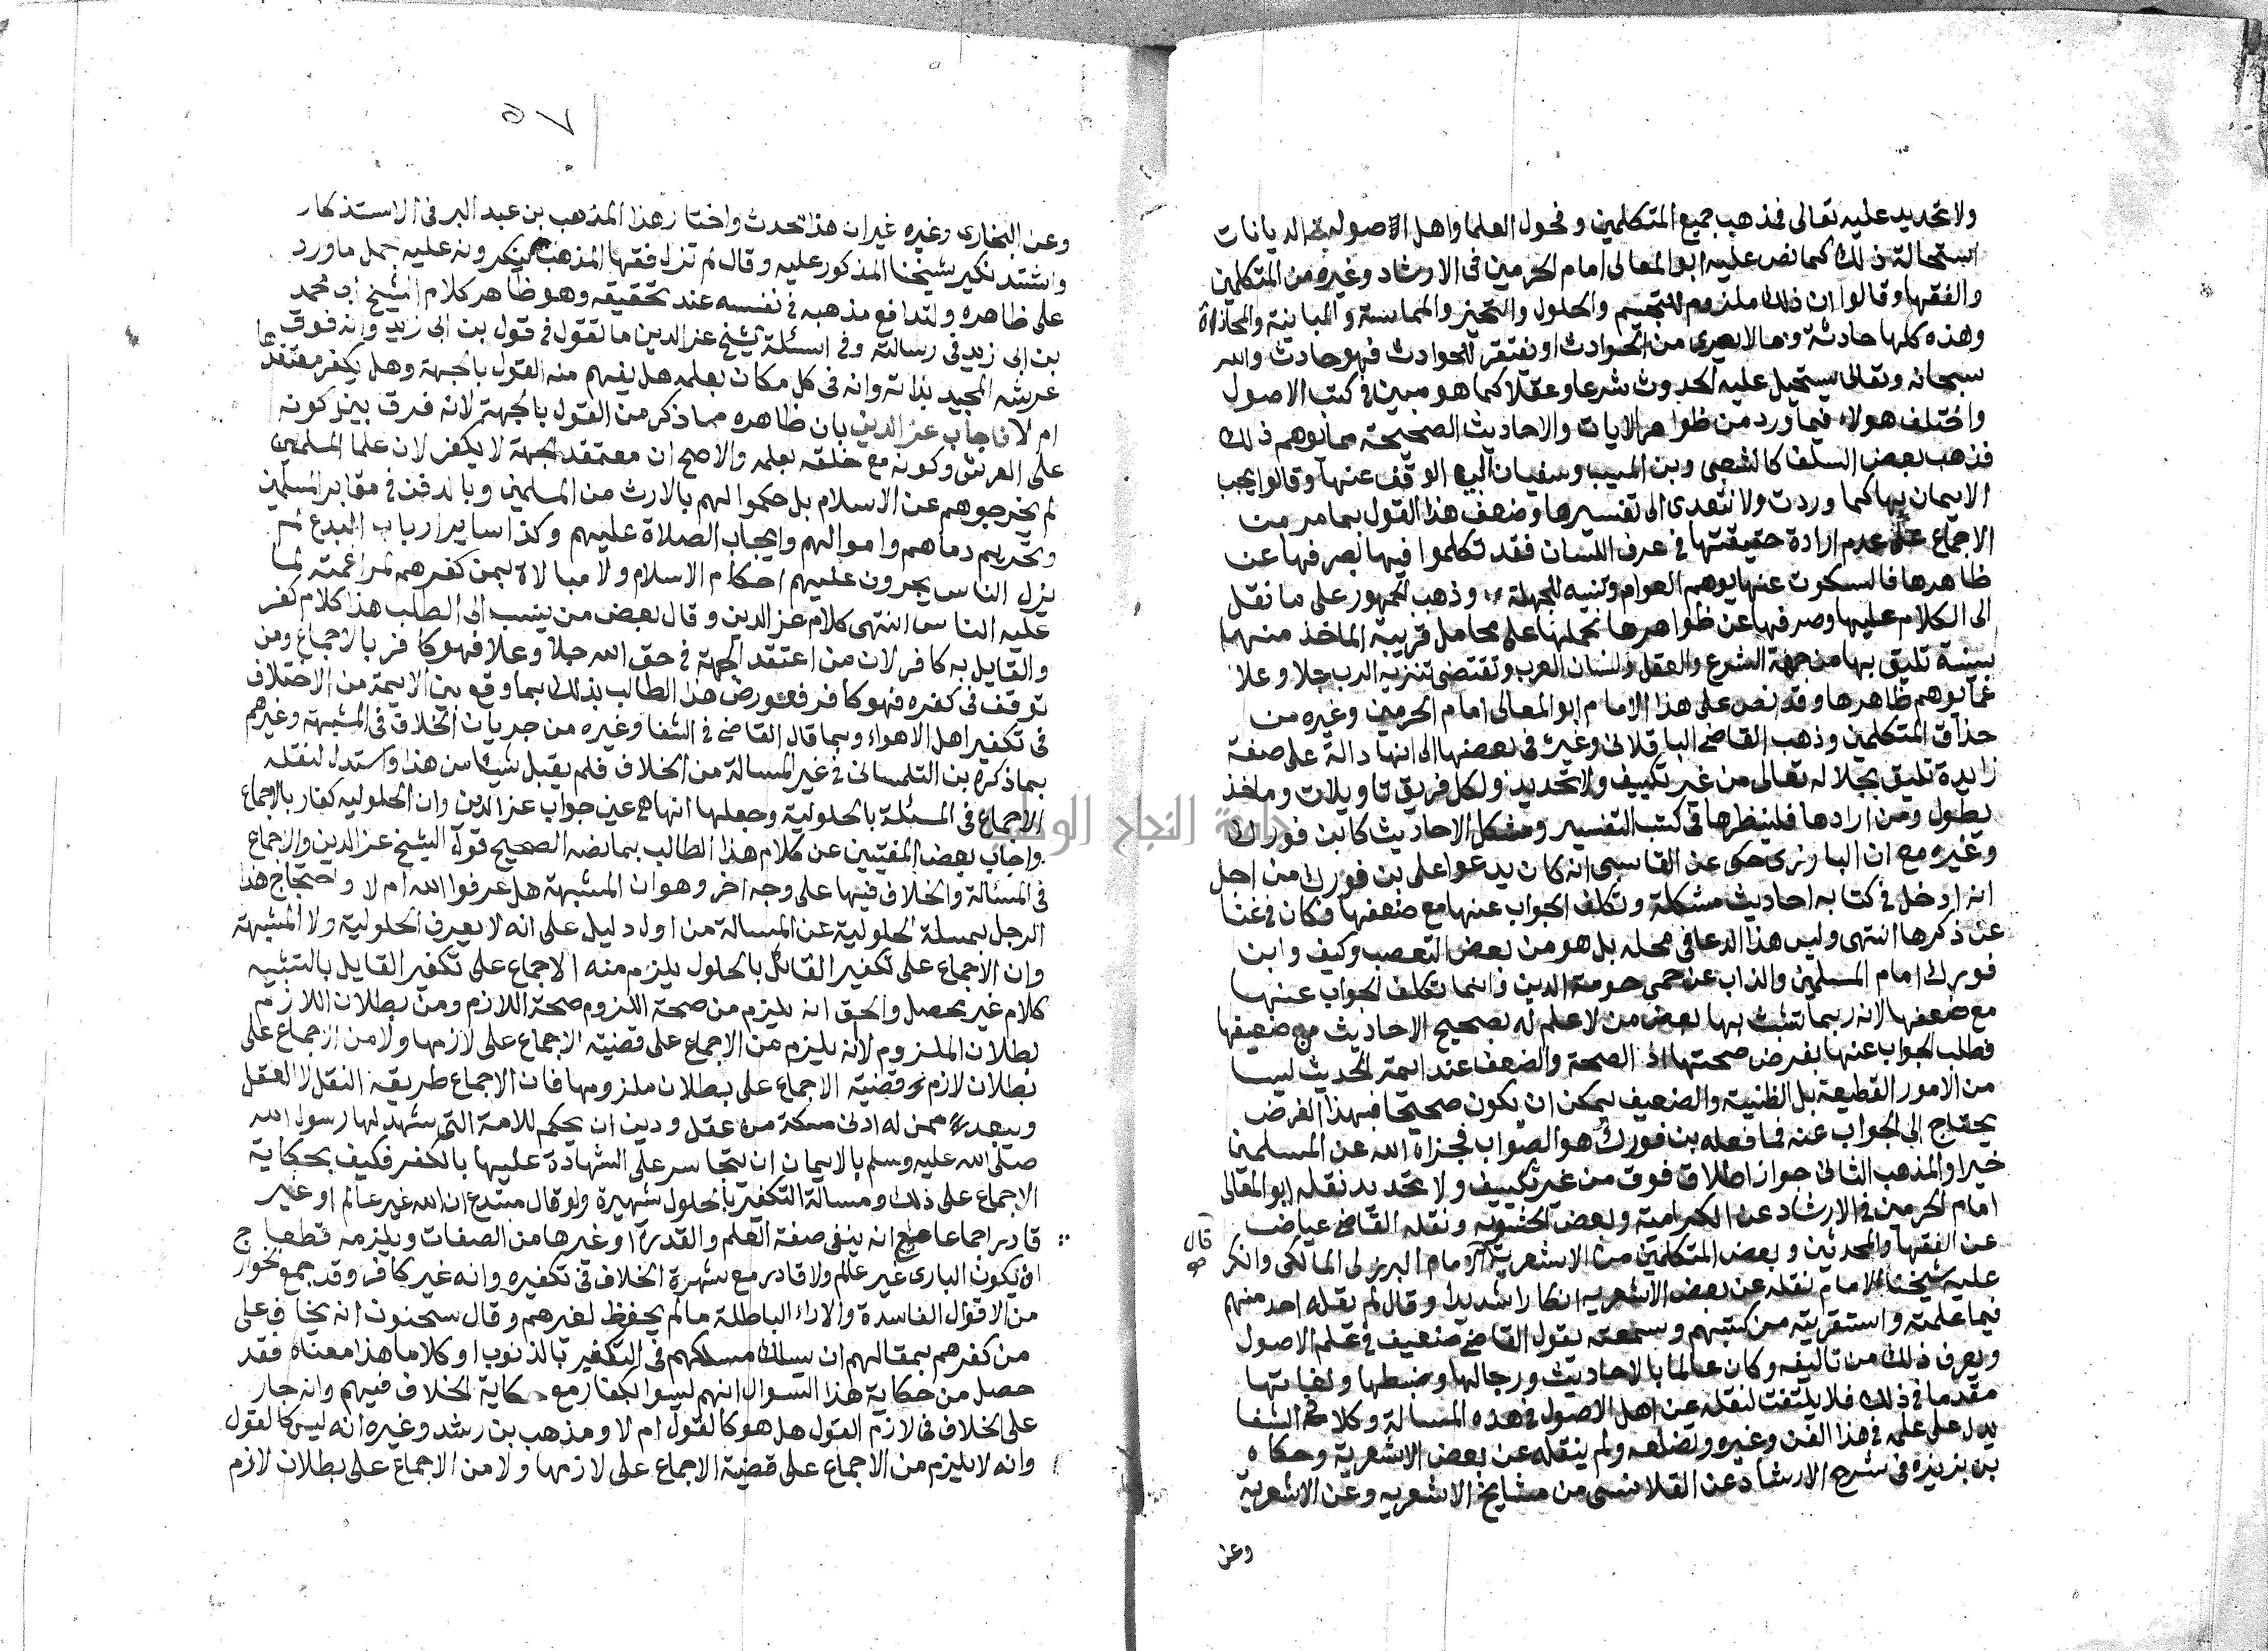 ولا تحديد عليه تعالى فذهب جميع المتكلمين وفحول العلما واهل الاصول الديانات
استحالة ذلك كما نص عليه ابو المعالى امام الحرمين فى الارشاد وغيره من المتكلمين
والفقها وقالوا ان ذلك ملزوم للتجسم والحلول والتحيز والمماسة والمباينة والمحاذاة
وهذه كلها حادثة وما لا يعرى من الحوادث او يفتقر للحوادث فهو حادث والله
سبحانه وتعالى يستحيل عليه الحدوث شرعا وعقلا كما هو مبين فى كتب الاصول
واختلف هولاء فيما ورد من ظواهر الايات والاحاديث الصحيحة مما يوهم ذلك
فذهب بعض السلف كالشعبى وبن المسيب وسفيان الى الوقف عنها وقالوا يجب
الايمان بها كما وردت ولا نتعدى الى تفسيرها وضعف هذا القول بما مر من
الاجماع على عدم ارادة حقيقتها فى عرف اللسان فقد تكلموا فيها بصرفها عن
ظاهرها فالسكوت عنها يوهم العوام وتنبيه للجهلة وذهب الجمهور على ما نقل
الى الكلام عليها وصرفها عن ظواهرها نحملها على محامل قريبة الماخذ منها
بينة تليق بها من جهة الشرع والعقل ولسان العرب وتقتضى تنزيه الرب جلا وعلا
عما يوهم ظاهرها وقد نص على هذا الامام ابو المعالى امام الحرمين وغيره من
حذاق المتكلمين وذهب القاضى الباقلانى وغيره فى بعضها الى انها دالة على صفة
زايدة تليق بجلاله تعالى من غير تكييف ولا تحديد ولكل فريق تاويلات وماخذ
يطول ومن ارادها فلينظرها فى كتب التفسير ومشكل الاحاديث كابن فورك
وغيره مع ان البارزى حكى عن القابسى انه كان يدعو اعلى بن فورك من اجل
انه ادخل فى كتابه احاديث مشكلة وتكلف الجواب عنها مع ضعفها وكان فى غنا
عن ذكرها انتهى وليس هذا الدعا فى محله بل هو من بعض التعصب وكيف وابن
فورك امام المسلمين والذاب عن حمى حومة الدين وانما تكلف الجواب عنها
مع ضعفها لانه ربما تشبث بها بعض من لا علم له بصحيح الاحاديث من ضعيفها
فطلب الجواب عنها بفرض صحتها اذ الصحة والضعف عند ايمة الحديث ليسا
من الامور القطيعة بل الظنية والضعيف يمكن ان يكون صحيحا فبهذا الفرض
يحتاج الى الجواب عنه فما فعله بن فورك هو الصواب فجزاه الله عن المسلمين
خيرا والمذهب الثانى جواز اطلاق فوق من غير تكييف ولا تحديد نقله ابو المعالى
امام الحرمين فى الارشاد عن الكرامية وبعض الحشوية ونقله القاضى عياض
عن الفقها والمحدثين وبعض المتكلمين من الاشعرية الامام البرزلى المالكى وانكر
قال
عليه شيخنا الامام نقله عن بعض الاشعريه انكارا شديدا وقال لم يقله احد منهم
فيما علمته واستقريته من كتبهم وسمعته يقول القاضى ضعيف فى علم الاصول
ويعرف ذلك من تاليفه وكان عالما بالاحاديث ورجالها وضبطها ولغاتها
مقدما فى ذلك فلا يلتفت لنقله عن اهل الاصول فى هذه المسالة وكلامه فى الشفا
يدل على علمه فى هذا الفن وغيره وتضلعه ولم ينقله عن بعض الاشعرية وحكاه
بن بزيزة فى شرح الارشاد عن القلانسى من مشايخ الاشعريه وعن الاشعرية
وعن
٥٧
وعن البخارى وغيره غير ان هذا محدث واختار هذا المذهب بن عبد البر فى الاستذكار
واشتد نكير شيخنا المذكور عليه وقال لم تزل فقها المذهب ينكرونه عليه بحمل ما ورد
على ظاهره ولتدافع مذهبه فى نفسه عند تحقيقه وهو ظاهر كلام الشيخ ابى محمد
بن ابى زيد فى رسالته وفى اسئلة الشيخ عز الدين ما تقول فى قول بن ابى زيد وانه فوق
عرشه المجيد بذاته وانه فى كل مكان بعلمه هل يفهم منه القول بالجهة وهل يكفر معتقدها
ام لا فاجاب عز الدين بان ظاهره مما ذكر من القول بالجهة لانه فرق بين كونه
على العرش وكونه مع خلقه بعلمه والاصح ان معتقد الجهة لا يكفر لان علما المسلمين
لم يخرجوهم عن الاسلام بل حكموا لهم بالارث من المسلمين وبالدفن فى مقابر المسلمين
وتحريم دماهم واموالهم وايجاب الصلاة عليهم وكذا ساير ارباب البدع لم
يزل الناس يجرون عليهم احكام الاسلام ولا مبالاة بمن كفرهم لمراغمته لما
عليه الناس انتهى كلام عز الدين وقال بعض من ينسب الى الطلب هذا كلام كفر
والقايل به كافر لان من اعتقد الجهة فى حق الله جلا وعلا فهو كافر بالاجماع ومن
توقف فى كفره فهو كافر فعورض هذا الطالب بذلك بما وقع بين الايمة من الاختلاف
فى تكفير اهل الاهواء وبما قال القاضى فى الشفا وغيره من جريات الخلاف فى المشبهة وغيرهم
بما ذكره بن التلمسانى فى غير المسالة من الخلاف فلم يقبل شيئا من هذا واستدل لنقله
الاجماع فى المسئلة بالحلولية وجعلها انها هى عين جواب عز الدين وان الحلوليه كفار بالاجماع
واجاب بعض المفتيين عن كلام هذا الطالب بما نصه الصحيح قولة الشيخ عز الدين والاجماع
فى المسالة والخلاف فيها على وجه اخر وهو ان المشبهة هل عرفوا الله ام لا واحتجاج هذا
الرجل بمسلة الحلولية عن المسالة من اول دليل على انه لا يعرف الحلولية ولا المشبهة
وان الاجماع على تكفير القائل بالحلول يلزم منه الاجماع على تكفير القايل بالتشبيه
كلام غير محصل والحق انه يلزم من صحة اللزوم صحة اللازم ومن بطلان اللازم
بطلان الملزوم لانه يلزم من الاجماع على قضية الاجماع على لازمها ولا من الاجماع على
بطلان لازم قضية الاجماع على بطلان ملزومها فان الاجماع طريقه النقل لا العقل
ويبعد ممن له ادنى مسكة من عقل ودين ان يحكم للامة التى شهد لها رسول الله
صلى الله عليه وسلم بالايمان ان يتجاسر على الشهادة عليها بالكفر فكيف بحكاية
الاجماع على ذلك ومسالة التكفير بالحلول شهيرة ولو قال مبتدع ان الله غير عالم او غير
قادر اجماعا مع انه ينفى صفة العلم والقدرة وغيرها من الصفات ويلزمه قطعا
ان يكون البارى غير عالم ولا قادر مع شهرة الخلاف فى تكفيره وانه غير كافر وقد جمع نحوار
من الاقوال الفاسدة والاراء الباطلة ما لم يحفظ لغيرهم وقال سحنون انه يخاف على
من كفرهم بمقالهم ان يسلك مسلكهم فى التكفير بالذنوب او كلاما هذا معناه فقد
حصل من حكاية هذا السوال انهم ليسوا بكفار مع حكاية الخلاف فيهم وانه جار
على الخلاف فى لازم القول هل هو كالقول ام لا ومذهب بن رشد وغيره انه ليس كالقول
وانه لا يلزم من الاجماع على قضية الاجماع على لازمها ولا من الاجماع على بطلان لازم
جامعة النجاح الوطنية